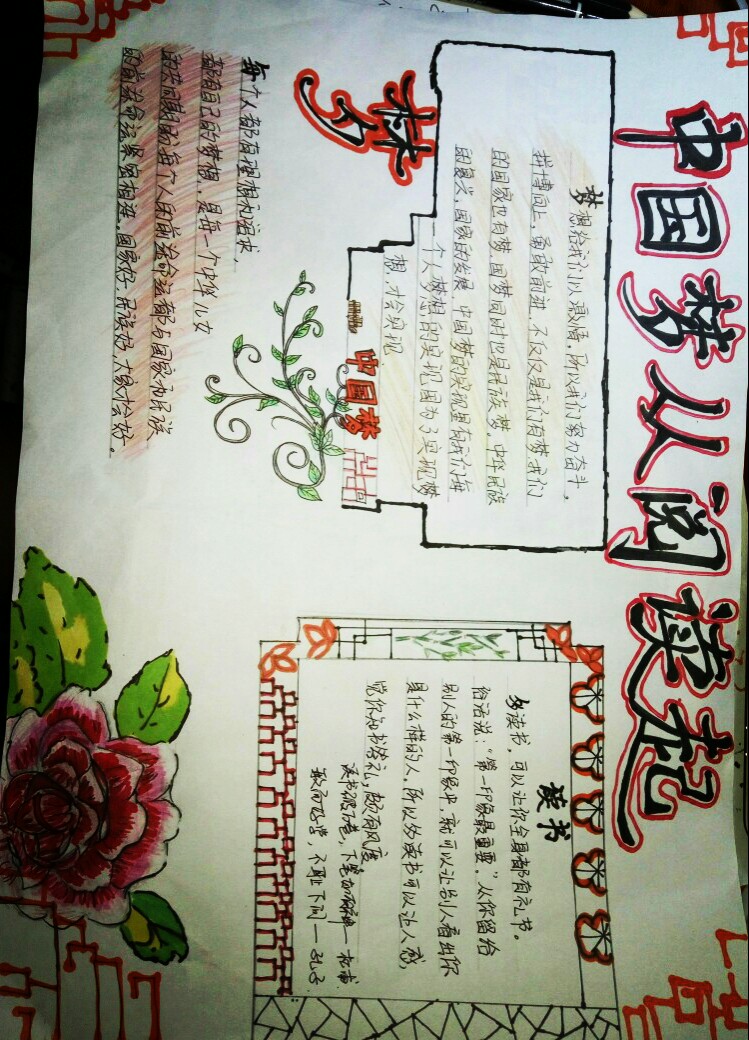 中国梦从阅读起
梦想给我们以激情,所以我们努力奋斗,
拼博向上,勇敢前进,不仅仅是我们有梦,我们
的国家也有梦,国梦同时也是民族梦,中华民族
的复兴,国家的发展,中国梦的实现是有我们每
一个人梦想的实现,因为了实现梦
想,才会实现
中国梦
梦
每个人都有理想和追求,
都有自己的梦想,是每一个中华儿女
的共同期盼,每个人的前途命运都与国家和民族
的前途命运紧密相连。国家好,民族好,大家才会好。
读书
多读书,可以让你全身都有礼节。
俗话说:“第一印象最重要。”从你留给
别人的第一印象中,就可以让别人看出你
是什么样的人。所以多读书可以让人感
觉你知书答礼,颇有风度。
读书破万卷,下笔如有神——杜甫
敏而好学,不耻下问——孔子